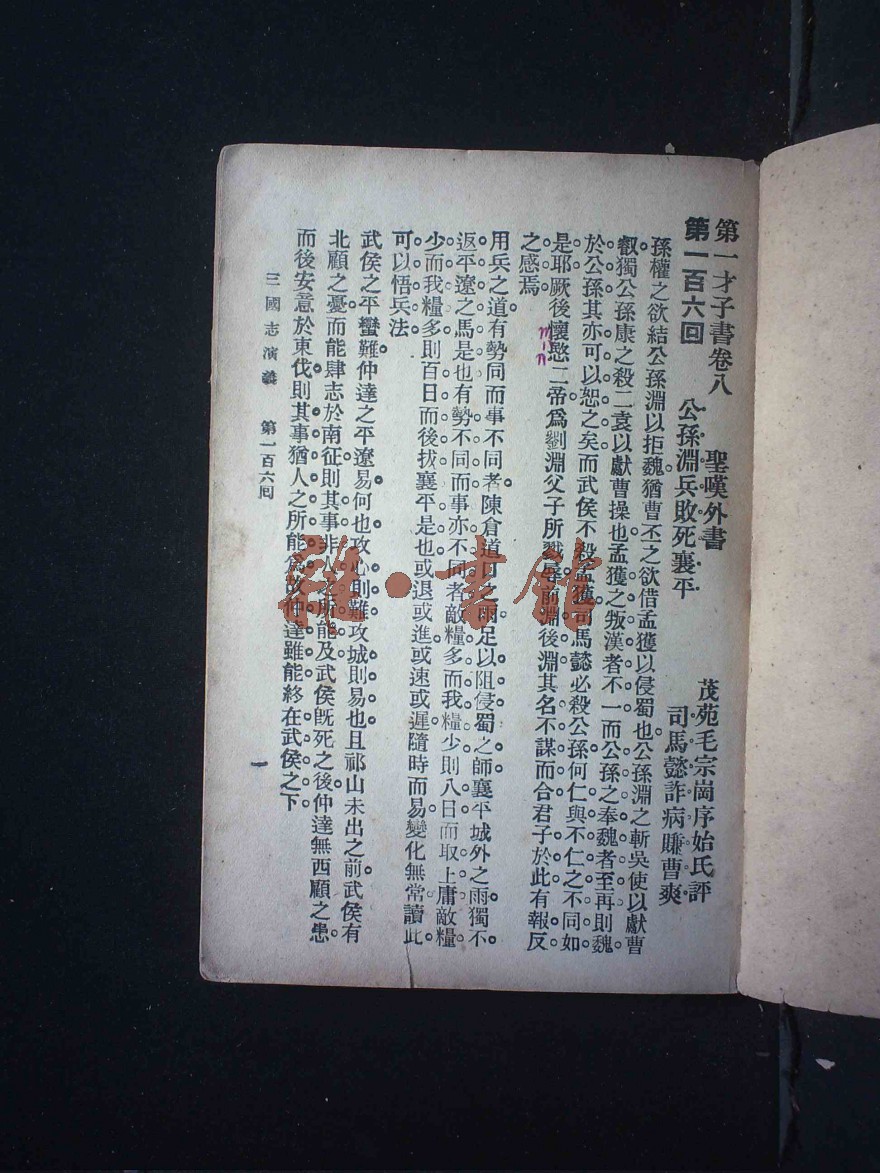 第一才子書卷八　聖嘆外書　茂苑毛宗崗序始氏評
第一百六回　公孫淵兵敗死襄平　司馬懿詐病賺曹爽
孫權之欲結公孫淵以拒魏猶曹丕之欲借孟獲以侵蜀也公孫淵之斬吳使以獻曹
叡獨公孫康之殺二袁以獻曹操也孟獲之叛漢者不一而公孫之奉魏者至再則魏
於公孫其亦可以恕之矣而武侯不殺孟獲司馬懿必殺公孫何仁與不仁之不同如
是耶厥後懷愍二帝爲劉淵父子所戮辱前淵後淵其名不謀而合君子於此有報反
之感焉
min
用兵之道有勢同而事不同者陳倉道口之雨足以阻侵蜀之師襄平城外之雨獨不
返平遼之馬是也有勢不同而事亦不同者敵糧多而我糧少則八日而取上庸敵糧
少而我糧多則百日而後拔襄平是也或退或進或速或遲隨時而易變化無常讀此
可以悟兵法
武侯之平蠻難仲達之平遼易何也攻心則難攻城則易也且祁山未出之前武侯有
北顧之憂而能肆志於南征則其事非人之所能及武侯旣死之後仲達無西顧之患
而後安意於東伐則其事猶人之所能爲故仲達雖能終在武侯之下
三國志演義　第一百六回　一
雒·書館